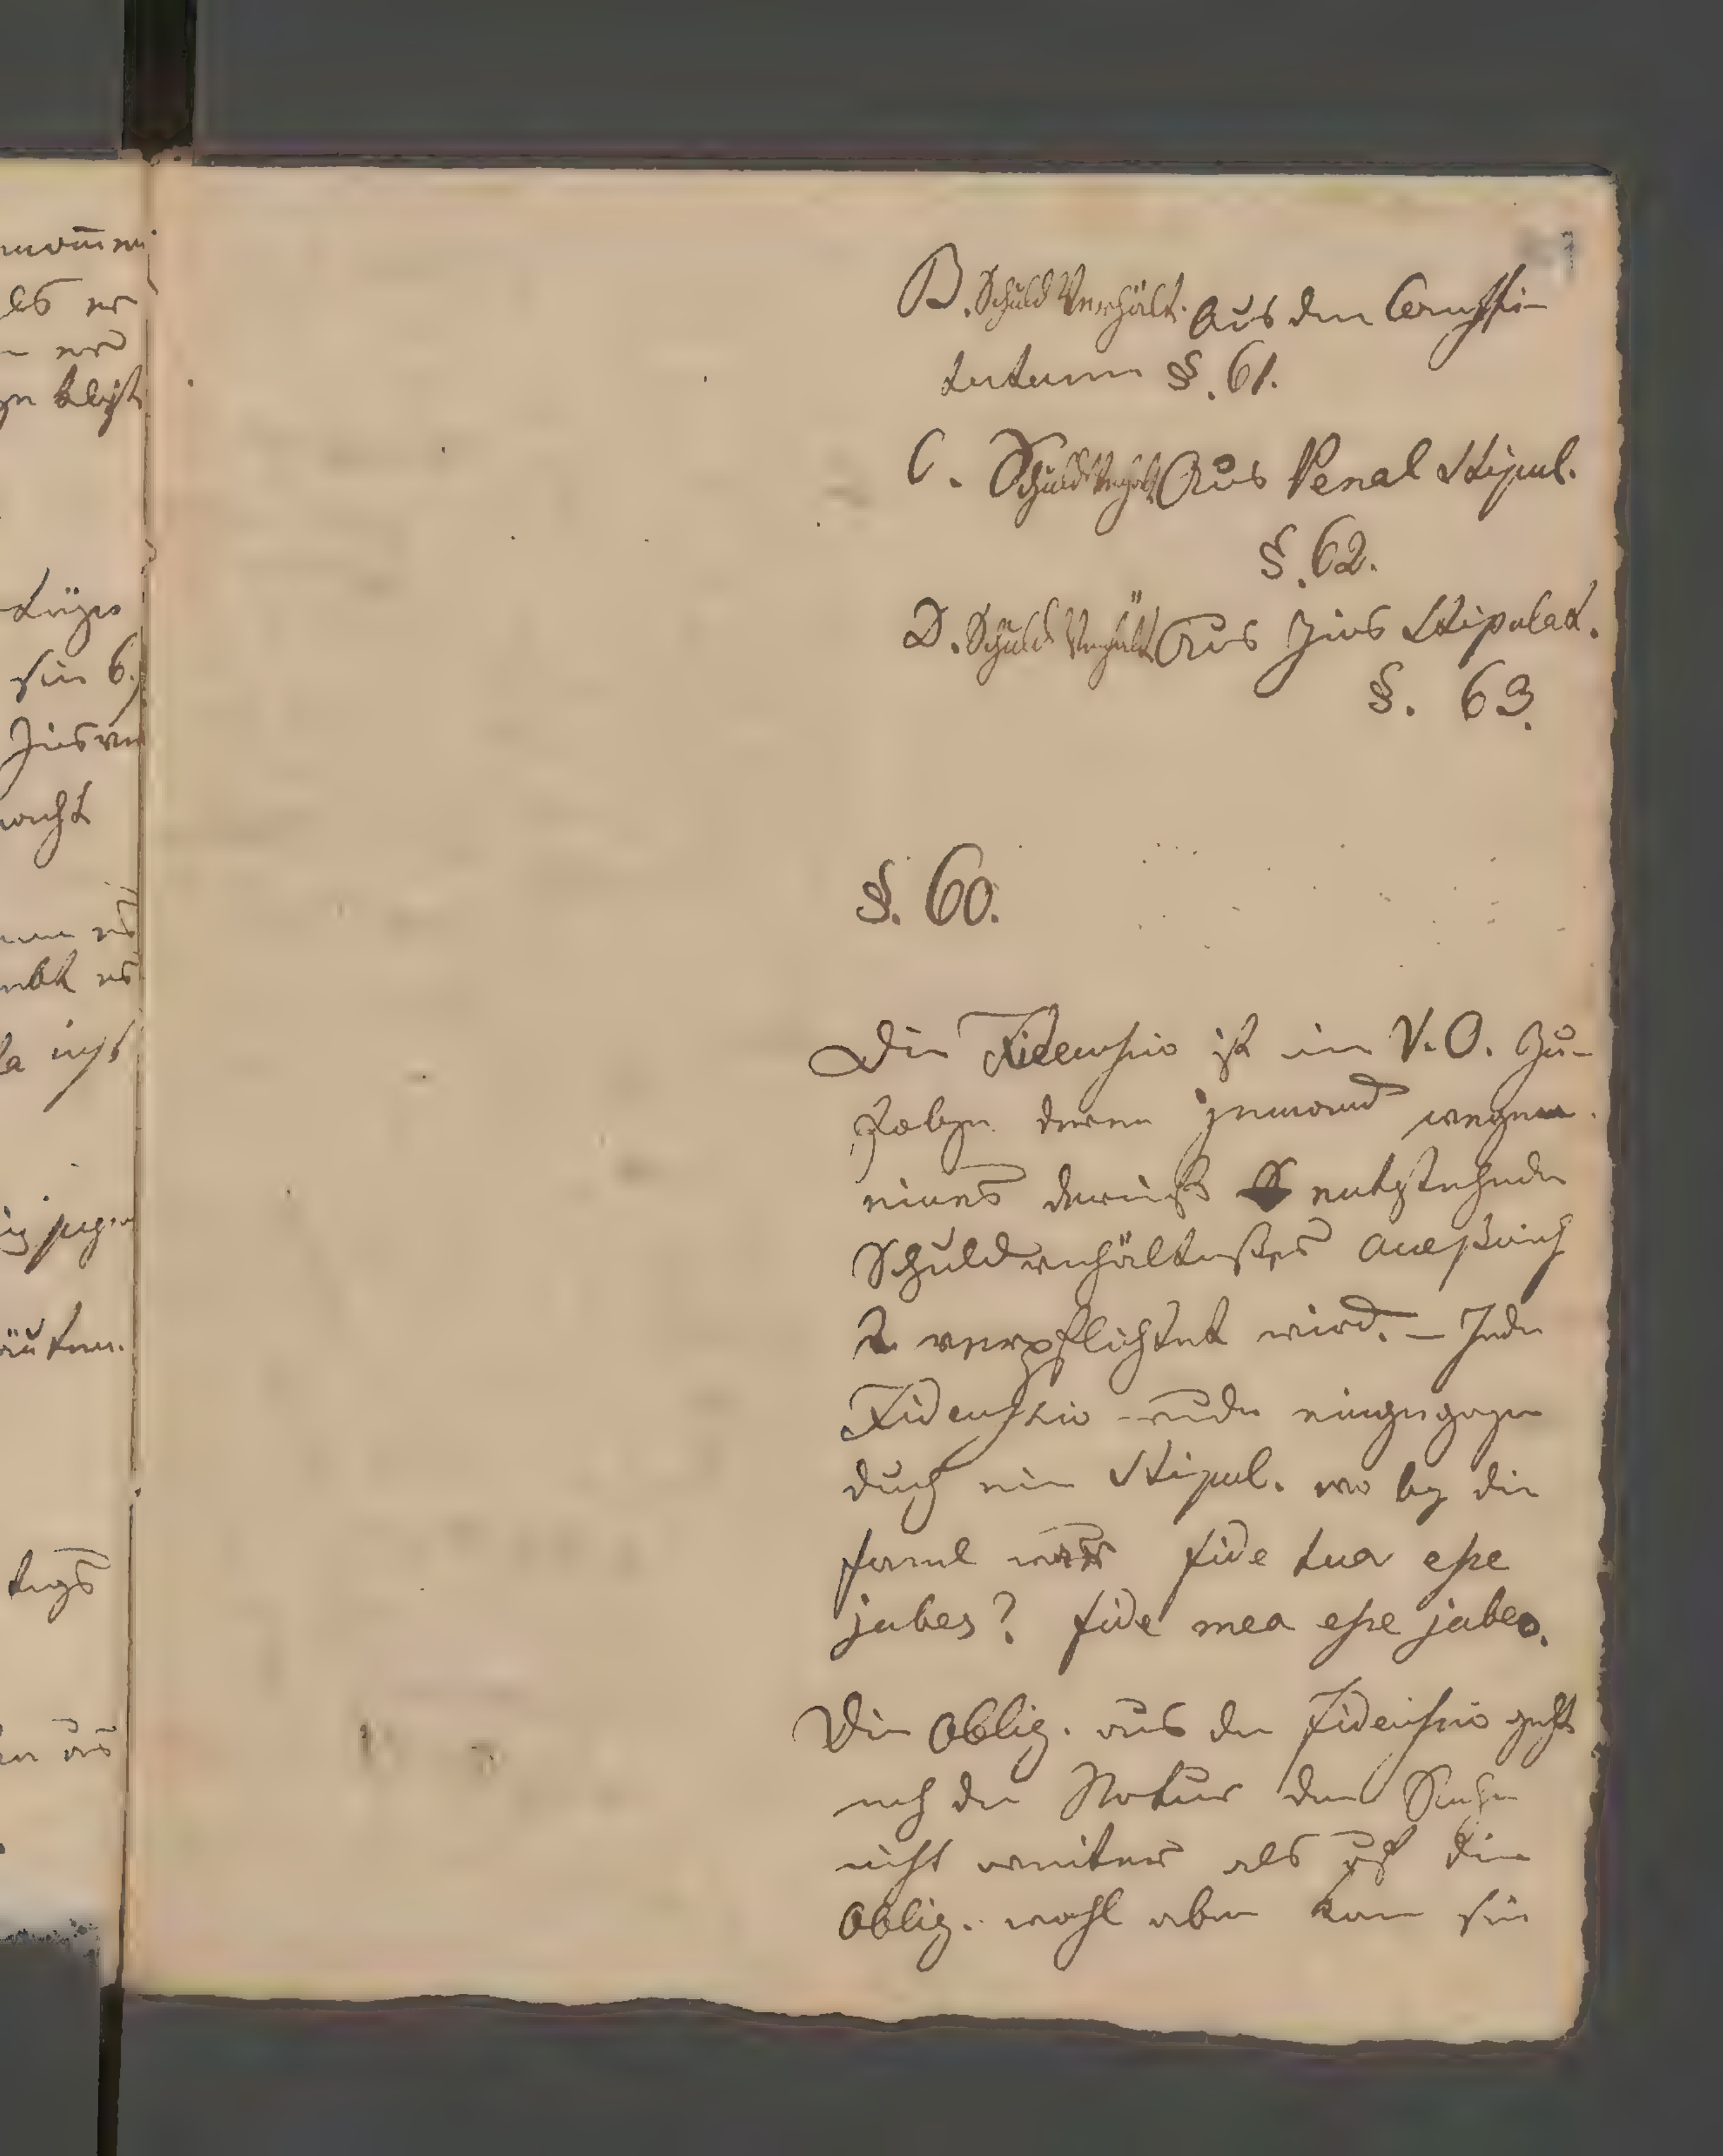 B. Schuld Verhält. aus den Consti-
tutum §. 61.
C. Schuld Verhält aus Penal Stipul.
§. 62.
D. Schuld Verhält aus Zins Stipulat.
§. 63.
§. 60.
Die Fidejussio ist ein V. O. Zu-
folge deren jemand wegen
eines daraus entstehenden
Schuldverhältnißes
verpflichtet wird. – Jede
Fidejussio eingegangen
durch eine Stipul. wo bey die
formel war fide tua esse
jubes? fide mea esse jubeo.
Die Oblig. aus der Fidejussio geht
nach der Natur der Sache
nicht weiter als auf die
Oblig. wohl aber kann sie